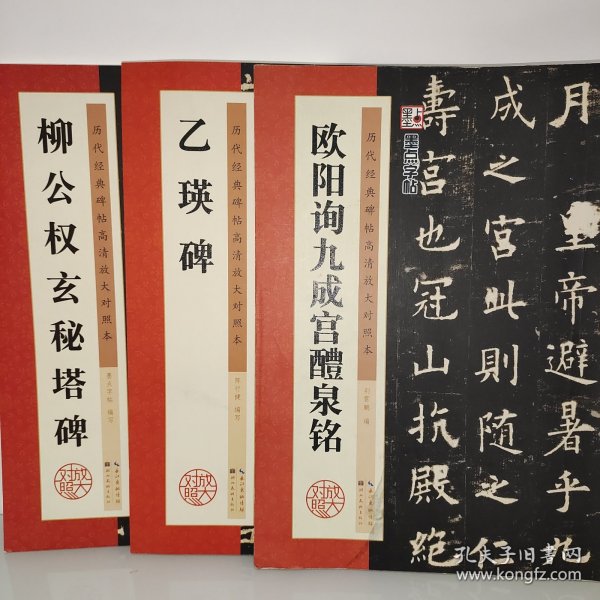 柳公权玄秘塔碑
历代经典碑帖高清放大对照本
墨点字帖 编写
放大对照
乙瑛碑
历代经典碑帖高清放大对照本
编写
放大对照
欧阳询九成宫醴泉铭
历代经典碑帖高清放大对照本
编
放大对照
墨点
墨点字帖
月
皇帝避暑乎九
成之宫此則随之仁
壽宫也冠山抗殿絶
孔夫子旧书网
www.kongfz.com